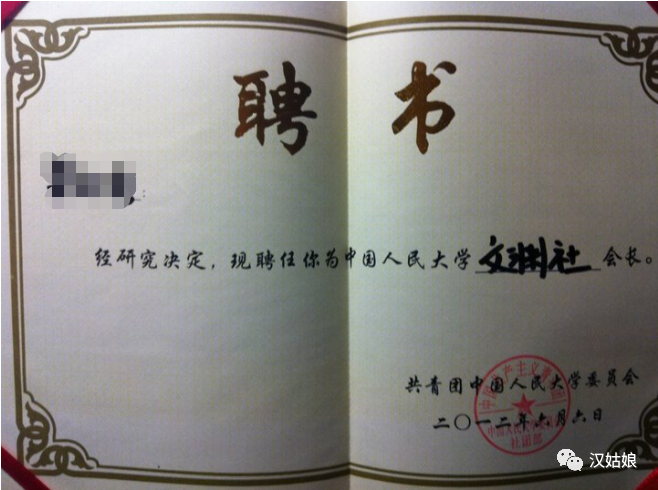 聘书
经研究决定，现聘任你为中国人民大学文渊社会长。
共青团中国人民大学委员会
二〇一二年六月六日
社团部
汉姑娘